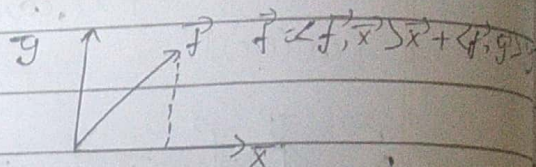 y⃗
f⃗ f⃗ = <f⃗, x⃗>x⃗ + <f⃗, y⃗>
x